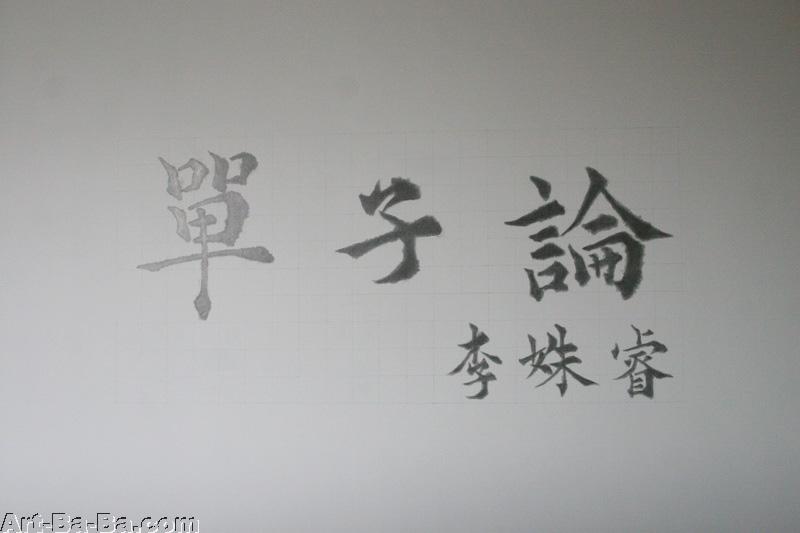 單子論
李姝睿
Art-Ba-Ba.com